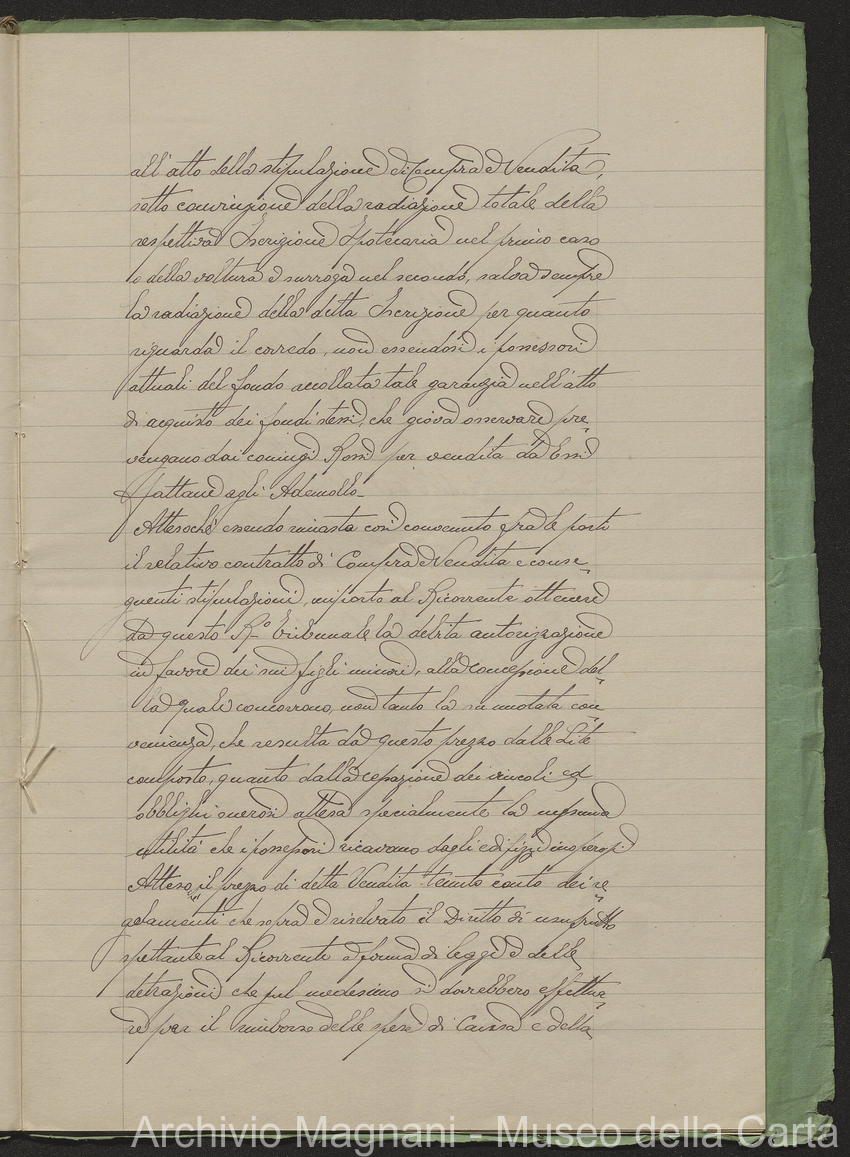 all'atto della stipulazione di Compra e Vendita,
sotto convinzione della radiazione totale della
respettiva Iscrizione Ipotecaria nel primo caso
o della voltura e surroga nel secondo, salva sempre
la radiazione della detta Iscrizione per quanto
riguarda il corredo, non essendosi i possessori
attuali del fondo accollata tale garanzia nell'atto
di acquisto dei fondi stessi, che giova osservare pre-
vengano dai coniugi Rossi per vendita da Essi
fattane agli Ademollo_
Attesochè essendo rimasta così convenuto fra le parti
il relativo contratto di Compra e Vendita e conse-
guenti stipulazioni, importa al Ricorrente ottenere
da questo R.o Tribunale la debita autorizzazione
in favore dei suoi figli minori, alla concessione del-
la quale concorrono, non tanto la su nnotata con-
venienza, che resulta da questo prezzo dalle Lite
composto, quanto dalla cessazione dei vincoli ed
obblighi onerosi attesa specialmente la nessuna
utilità che i possessori ricavano dagli edifizzi inoperosi
Atteso il prezzo di detta Vendita tenuto conto dei re-
golamenti che sopra e riservato il Diritto di usufrutto
spettante al Ricorrente a forma di legge e delle
detrazioni che sul medesimo si dovrebbero effettua-
re per il rimborso delle spese di Causa e della
Archivio Magnani - Museo della Carta